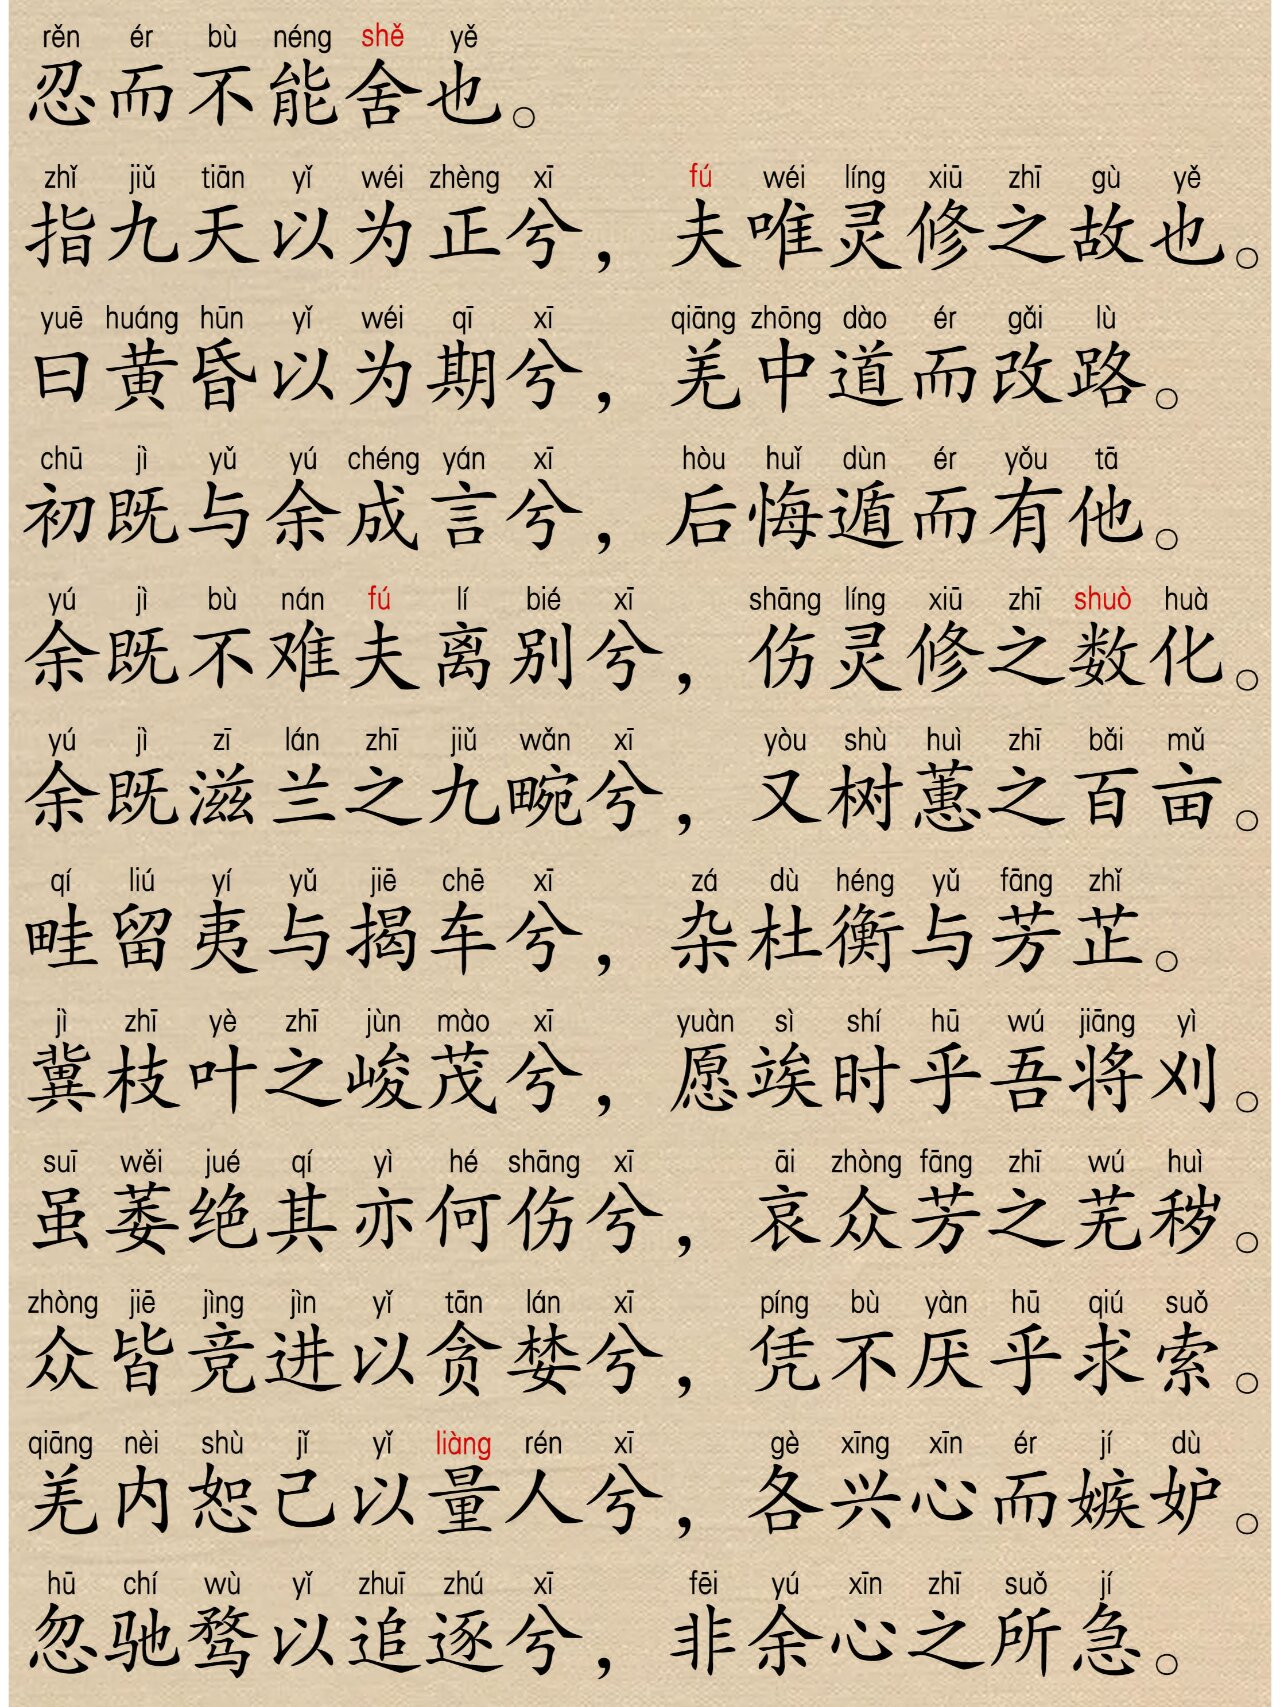 rěn ér bù néng shě yě
忍而不能舍也。
zhǐ jiǔ tiān yǐ wéi zhèng xī fú wéi líng xiū zhī gù yě
指九天以为正兮，夫唯灵修之故也。
yuē huáng hūn yǐ wéi qī xī qiāng zhōng dào ér gǎi lù
曰黄昏以为期兮，羌中道而改路。
chū jì yǔ yú chéng yán xī hòu huǐ dùn ér yǒu tā
初既与余成言兮，后悔遁而有他。
yú jì bù nán fú lí bié xī shāng líng xiū zhī shuò huà
余既不难夫离别兮，伤灵修之数化。
yú jì zī lán zhī jiǔ wǎn xī yòu shù huì zhī bǎi mǔ
余既滋兰之九畹兮，又树蕙之百亩。
qí liú yí yǔ jiē chē xī zá dù héng yǔ fāng zhǐ
畦留夷与揭车兮，杂杜衡与芳芷。
jì zhī yè zhī jùn mào xī yuàn sì shí hū wú jiāng yì
冀枝叶之峻茂兮，愿竢时乎吾将刈。
suī wěi jué qí yì hé shāng xī āi zhòng fāng zhī wú huì
虽萎绝其亦何伤兮，哀众芳之芜秽。
zhòng jiē jìng jìn yǐ tān lán xī píng bù yàn hū qiú suǒ
众皆竞进以贪婪兮，凭不厌乎求索。
qiāng nèi shù jǐ yǐ liàng rén xī gè xīng xīn ér jí dù
羌内恕己以量人兮，各兴心而嫉妒。
hū chí wù yǐ zhuī zhú xī fēi yú xīn zhī suǒ jí
忽驰骛以追逐兮，非余心之所急。